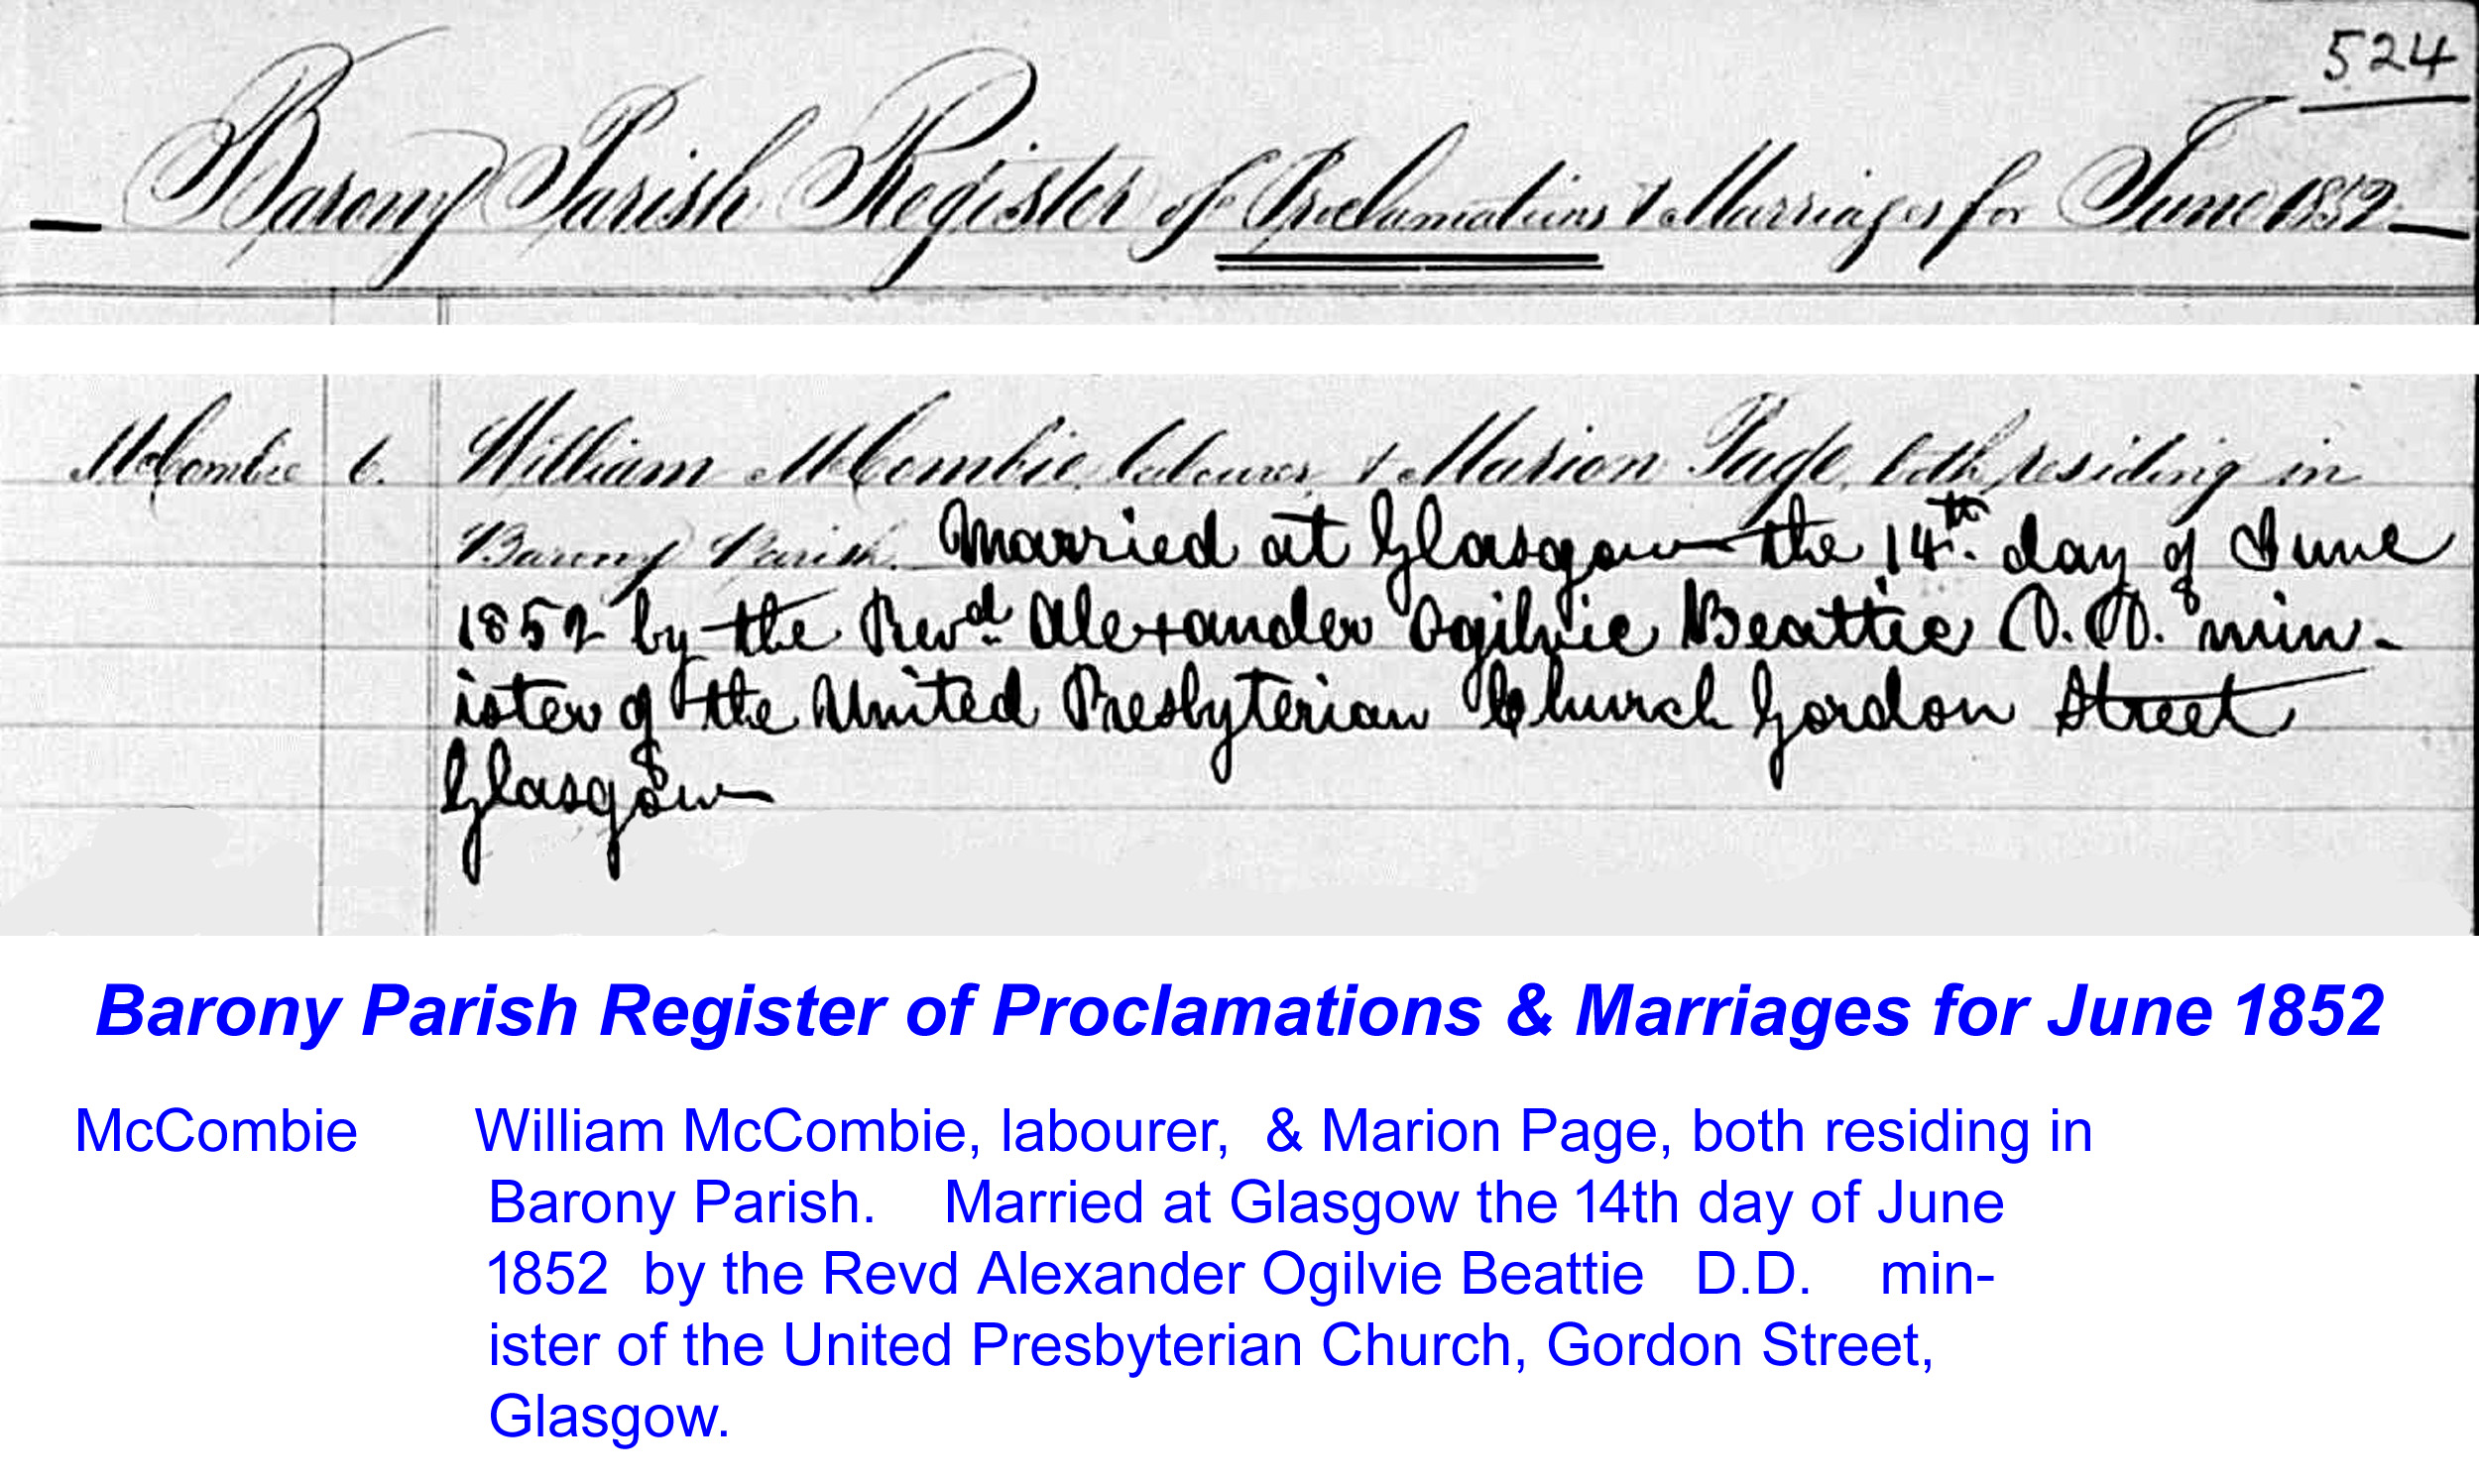 524
Barony Parish Register of Proclamations & Marriages for June 1852
McCombie 6. William McCombie, labourer, & Marion Page, both residing in
Barony Parish. Married at Glasgow the 14th. day of June
1852 by the Revd. Alexander Ogilvie Beattie D.D. min-
ister of the United Presbyterian Church Gordon Street
Glasgow
Barony Parish Register of Proclamations & Marriages for June 1852
McCombie William McCombie, labourer, & Marion Page, both residing in
Barony Parish. Married at Glasgow the 14th day of June
1852 by the Revd Alexander Ogilvie Beattie D.D. min-
ister of the United Presbyterian Church, Gordon Street,
Glasgow.